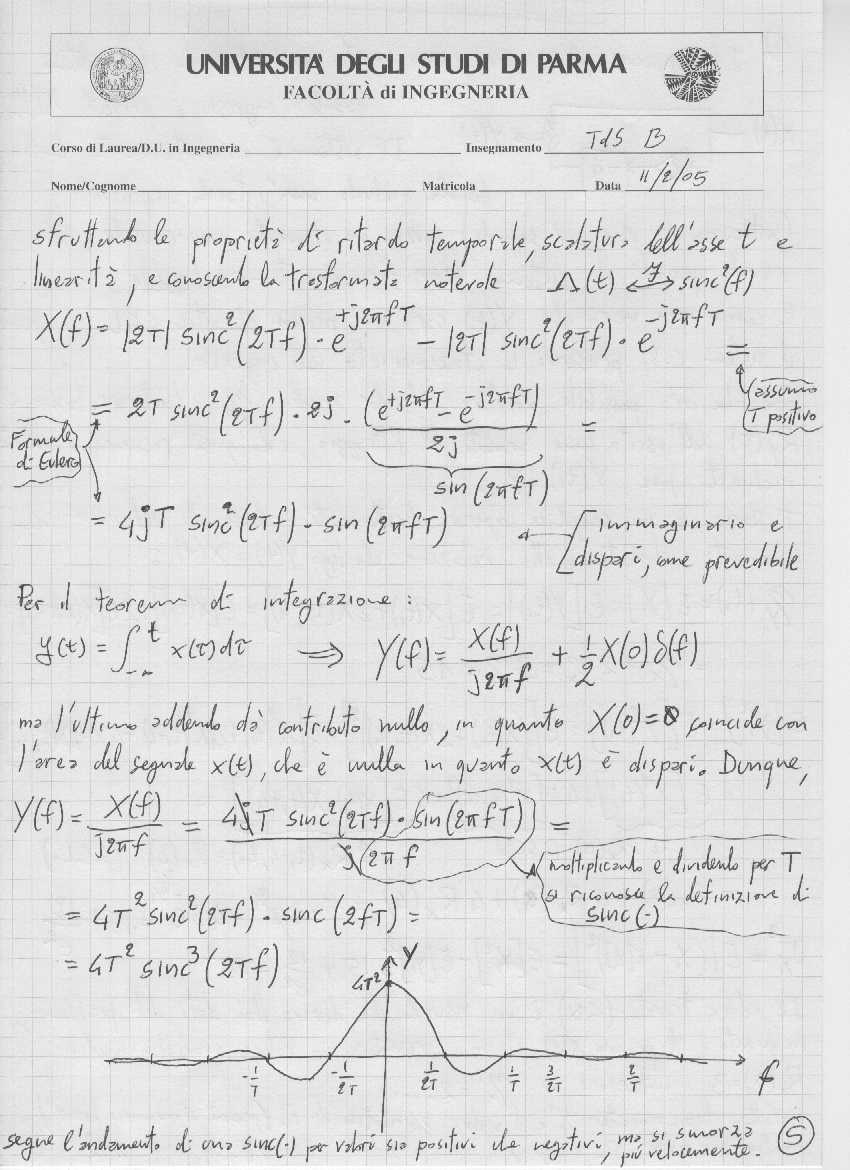 UNIVERSITA' DEGLI STUDI DI PARMA
FACOLTÀ di INGEGNERIA
Corso di Laurea/D.U. in Ingegneria Insegnamento TdS B
Nome/Cognome Matricola Data 11/2/05
sfruttando le proprietà di ritardo temporale, scalatura dell'asse t e
linearità, e conoscendo la trasformata notevole Λ(t) ⟷ sinc²(f)
X(f) = |2T| sinc²(2Tf) · e^{+j2πfT} − |2T| sinc²(2Tf) · e^{−j2πfT} =
assumo
T positivo
= 2T sinc²(2Tf) · 2j · (e^{+j2πfT} − e^{−j2πfT}) / 2j =
sin(2πfT)
Formule
di Eulero
= 4jT sinc²(2Tf) · sin(2πfT)
immaginario e
dispari, come prevedibile
Per il teorema di integrazione:
y(t) = ∫_{-∞}^{t} x(τ)dτ ⟹ Y(f) = X(f)/j2πf + 1/2 X(0)δ(f)
ma l'ultimo addendo dà contributo nullo, in quanto X(0)=0 coincide con
l'area del segnale x(t), che è nulla in quanto x(t) è dispari. Dunque,
Y(f) = X(f)/j2πf = 4jT sinc²(2Tf) · sin(2πfT) / j2πf =
moltiplicando e dividendo per T
si riconosce la definizione di
sinc(·)
= 4T² sinc²(2Tf) · sinc(2fT) =
= 4T² sinc³(2Tf)
Y
4T²
-1/T -1/2T 1/2T 1/T 3/2T 2/T f
segue l'andamento di una sinc(·) per valori sia positivi che negativi, ma si smorza
più velocemente.
5